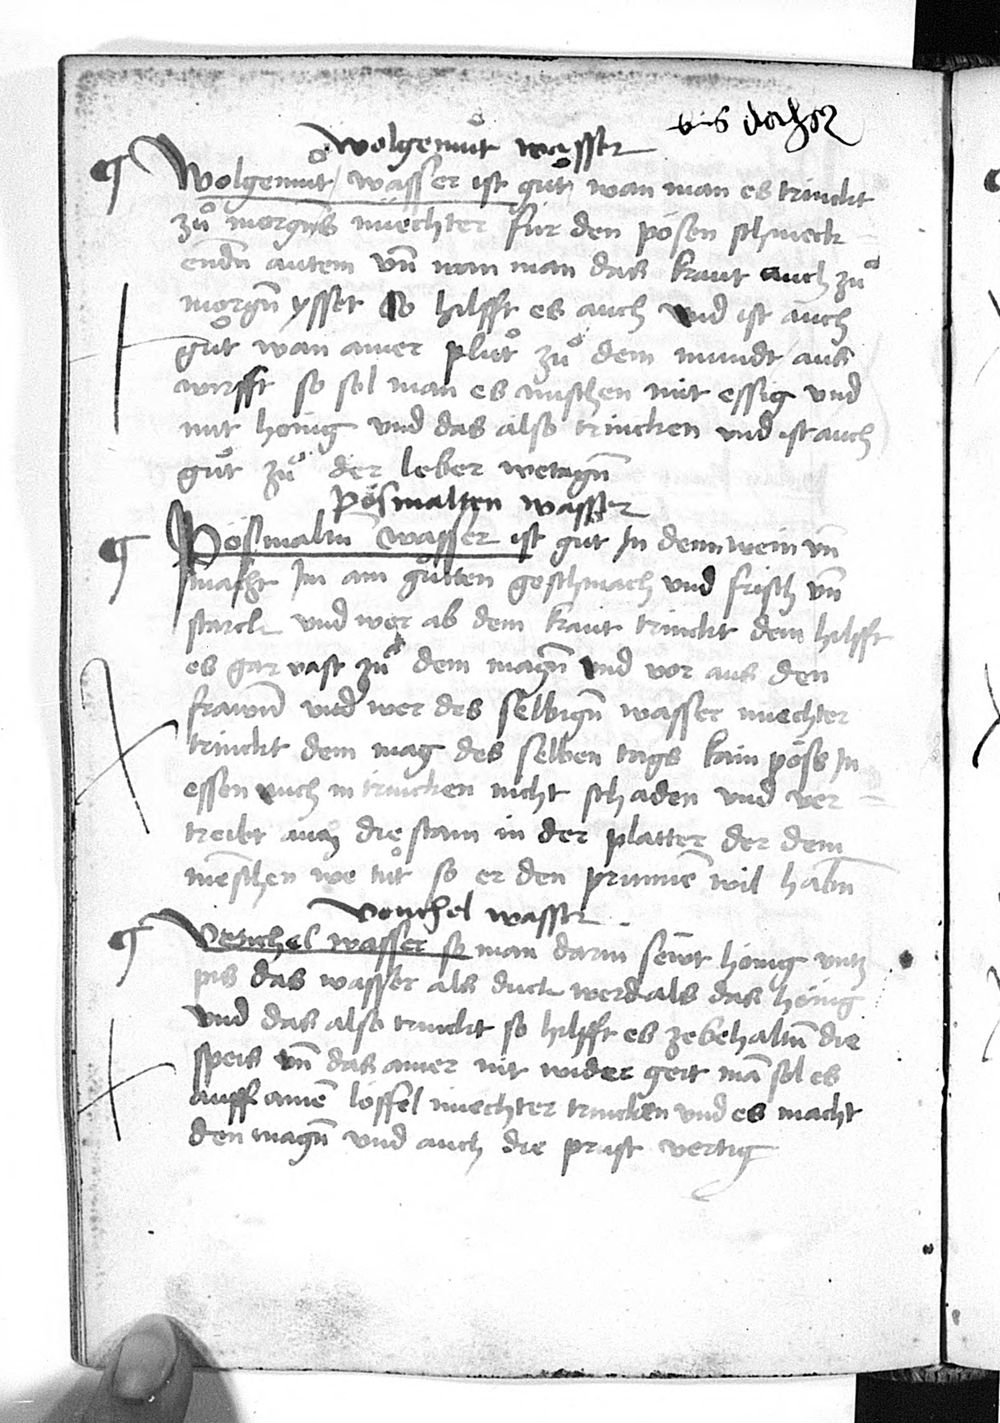 vis daher
Wolgemůt wasser
Wolgemůt wasser ist gůt wan man es trinckt
zů morgñs nüechter für den pösen schmeck
endñ autem vñ wan man das kraut auch zů
morgñ ysset so hilfft es auch vnd ist auch
gůt wan ainer plůt zů dem mundt aus
wirfft so sol man es mischen mit essig vnd
mit honig vnd das also trincken vnd ist auch
gůt zů der leber wetagñ
Pösmalten wasser
Pösmaltñ wasser ist gut In dem wein vñ
macht Im ain gůtten geschmach vnd frisch vñ
starck vnd wer ab dem kraut trinckt dem hilfft
es gar vast zů dem magñ vnd vor aus den
frawñ vnd wer des selbigñ wasser nüechter
trinckt dem mag des selben tags kain pöss In
essen auch in trincken nicht schaden vnd ver
treibt auch die stain in der platter der dem
mēschen we tůt so er den prunnē wil habñ
Venichel wasser
Venichel wasser so man darin sewt honig vntz
pis das wasser als dick werd als das honig
vnd das also trinckt so hilfft es zebehaltñ die
speis vñ das ainer nit wider geit mā sol es
auff ainē löffel nüechter trincken vnd es macht
den magñ vnd auch die prust vertig